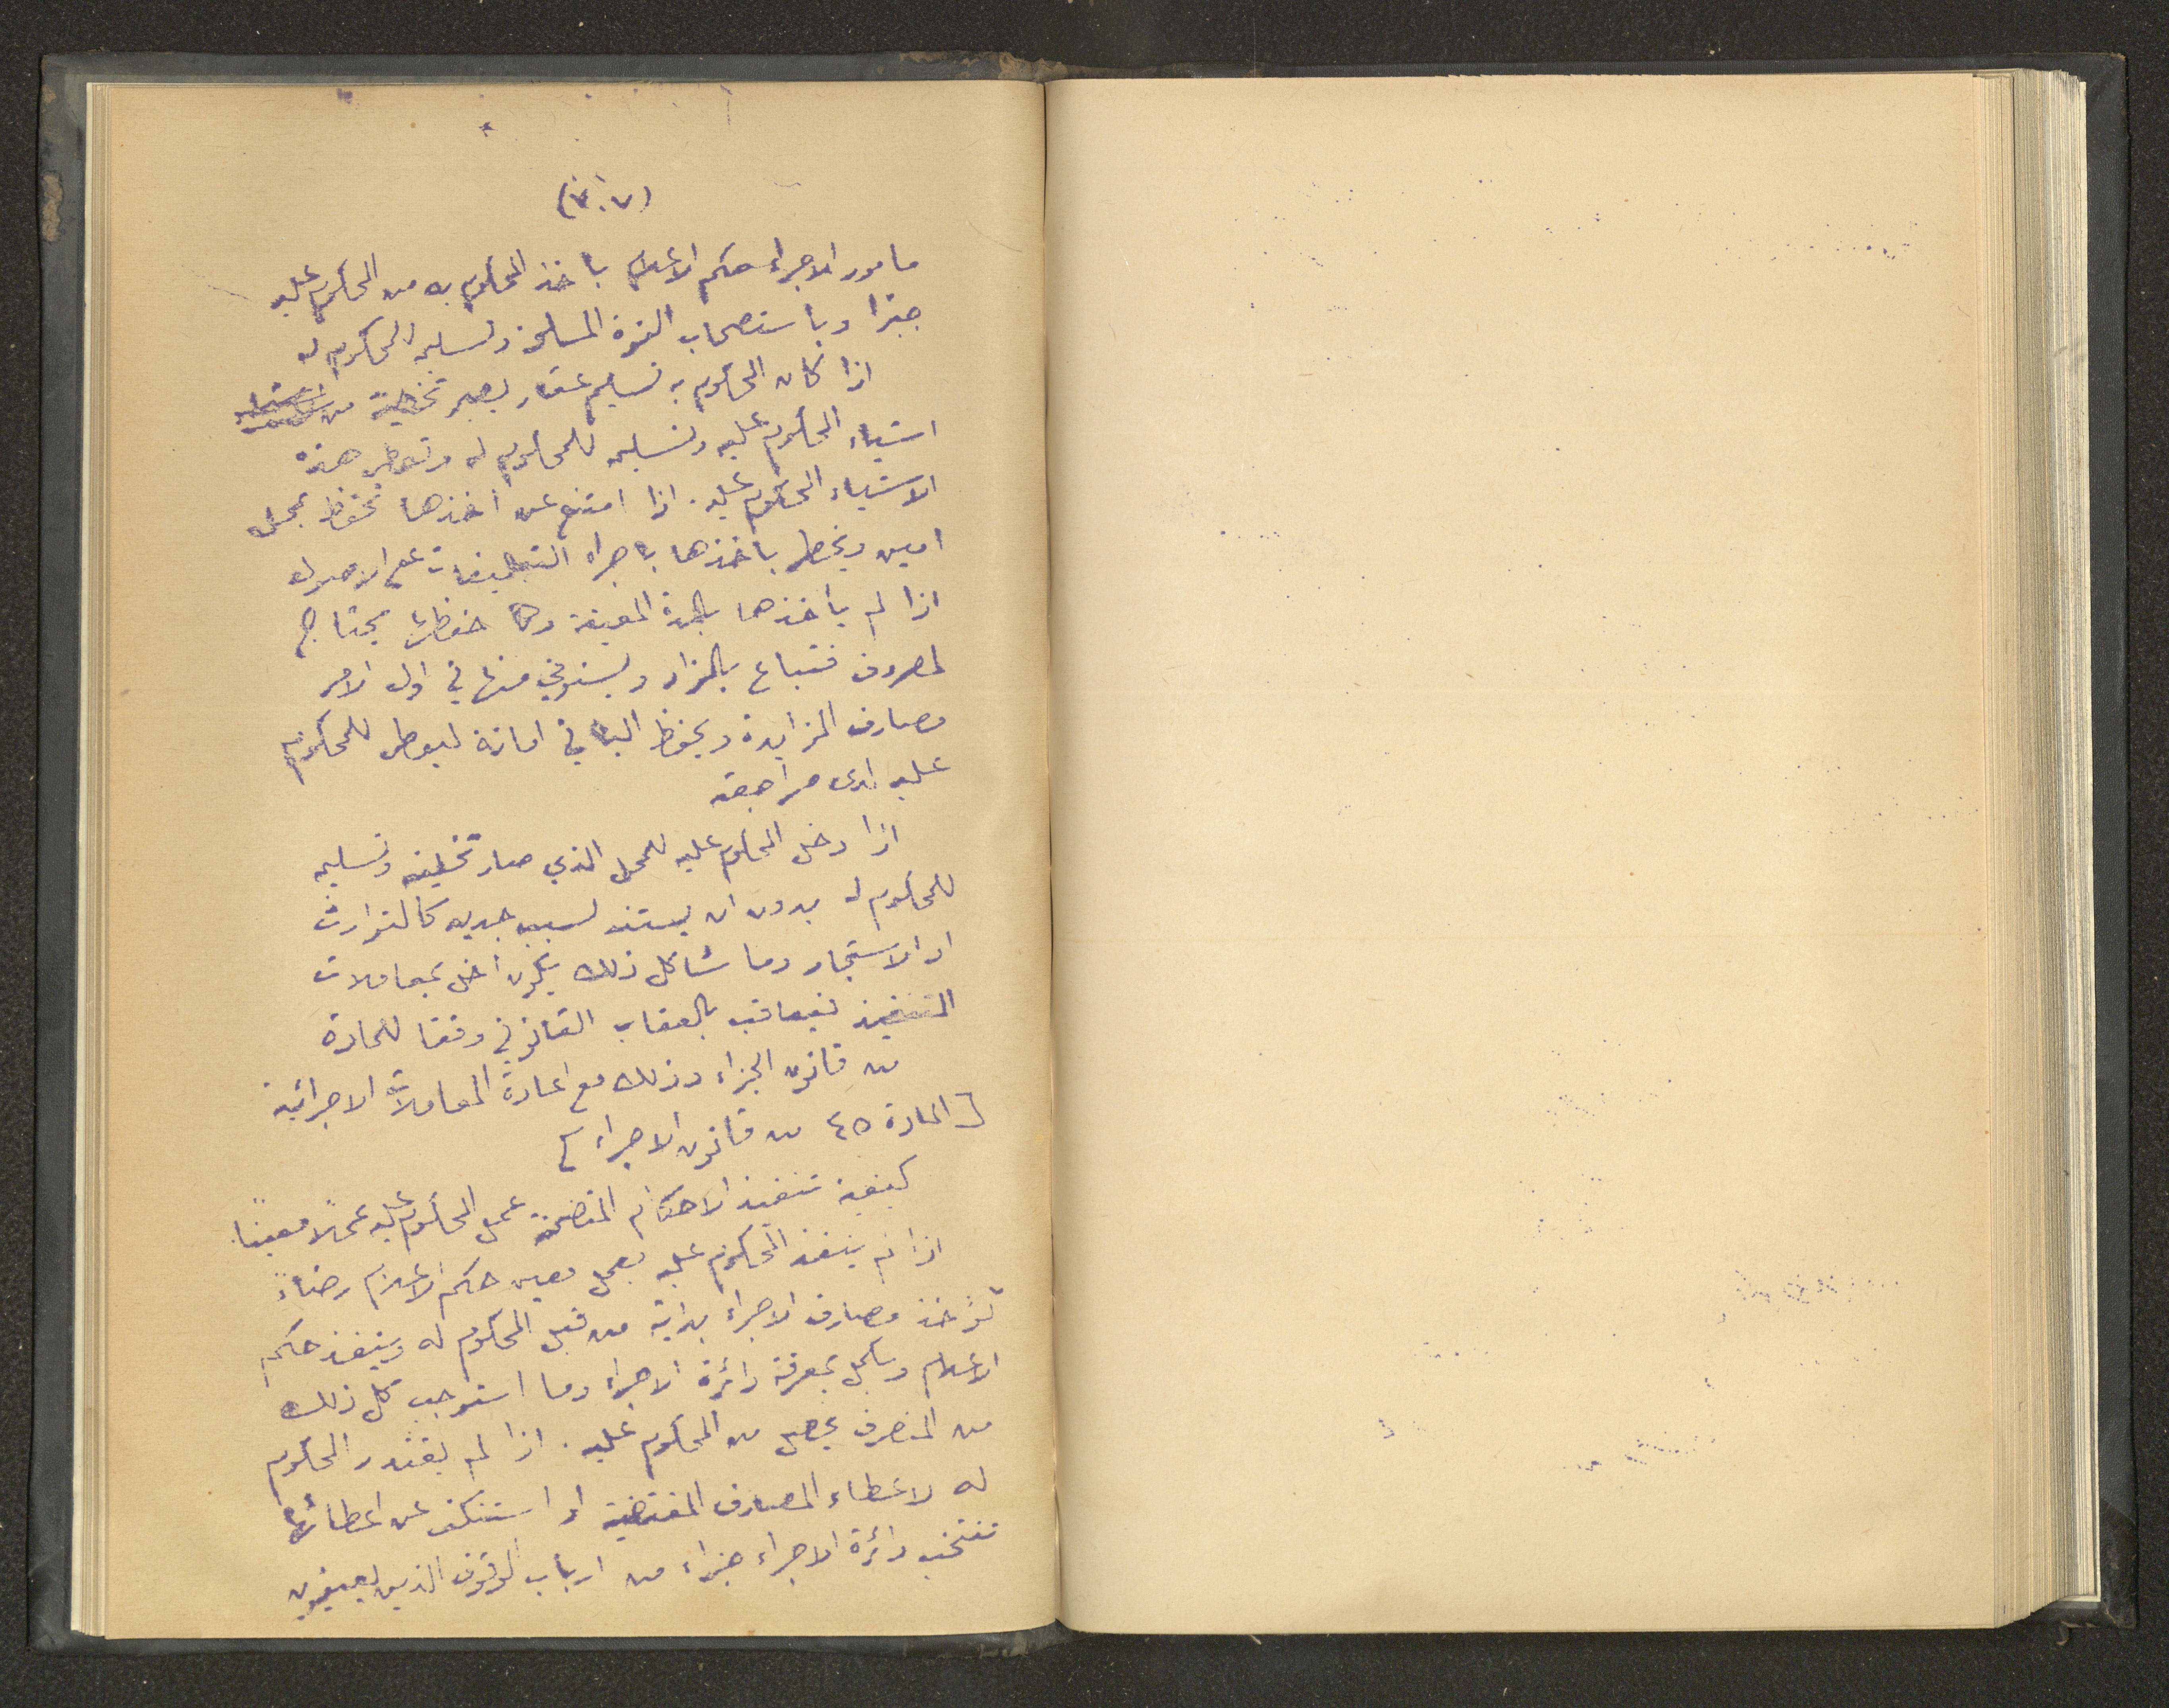 (٧٠٧)
مامور الاجراء حكم الاعلام باخذ المحكوم به من المحكوم عليه
جبرًا وباستصحاب القوة المسلحة وتسليمه للمحكوم له
اذا كان المحكوم به تسليم عقار يصير تخليته من
اشياء المحكوم عليه وتسليمه للمحكوم له وتعطى هذه
الاشياء المحكوم عليه . اذا امتنع عن اخذها تحفظ بمحل
امين ويخطر باخذها باجراء التبليغات على الاصول
اذا لم ياخذها بالمدة المعينة وكان حفظها يحتاج
لمصروف فتباع بالمزاد ويستوفي منها في اول الامر
مصارف المزايدة ويحفظ الباقي امانة ليعطى للمحكوم
عليه لدى مراجعته
اذا دخل المحكوم عليه للمحل الذي صار تخليته وتسليمه
للمحكوم له بدون ان يستند لسبب جديد كالتوارث
او الاستئجار وما شاكل ذلك يكون أخل بمعاملات
التنفيذ فيعاقب بالعقاب القانوني وفقا للمادة
من قانون الجزاء وذلك مع اعادة المعاملات الاجرائية
[المادة ٤٥ من قانون الاجراء]
كيفية تنفيذ الاحكام المتضمنة عمل المحكوم عليه عملًا معينًا.
اذا لم ينفذ المحكوم عليه بعمل معين حكم الاعلام رضاءً
تؤخذ مصارف الاجراء بداية من قبل المحكوم له وينفذ حكم
الاعلام ويكمل بمعرفة دائرة الاجراء وما استوجب كل ذلك
من المصرف يحصل من المحكوم عليه . اذا لم يقتدر المحكوم
له لاعطاء المصارف المقتضية او استنكف عن اعطائها
تنتخب دائرة الاجراء خبراء من ارباب الوقوف الذين يعينون